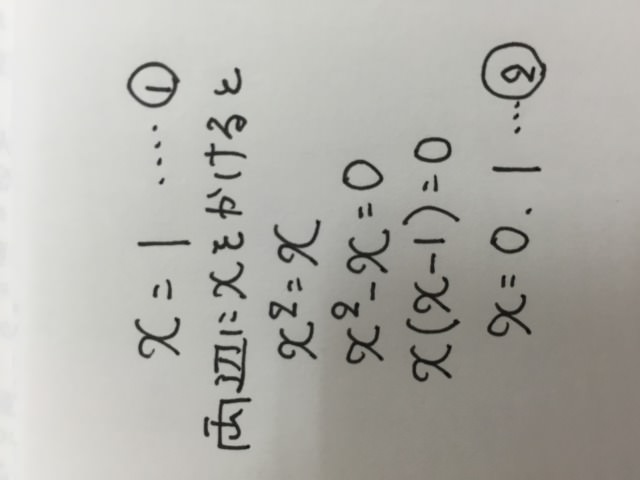 x = 1 ････ ①
両辺にxをかけると
x² = x
x² - x = 0
x(x-1) = 0
x = 0. 1 … ②